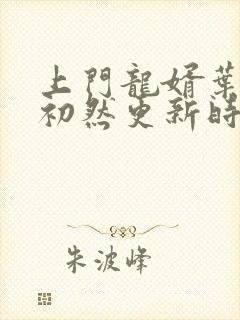 上門龍婿葉
初然更新時
朱波峰